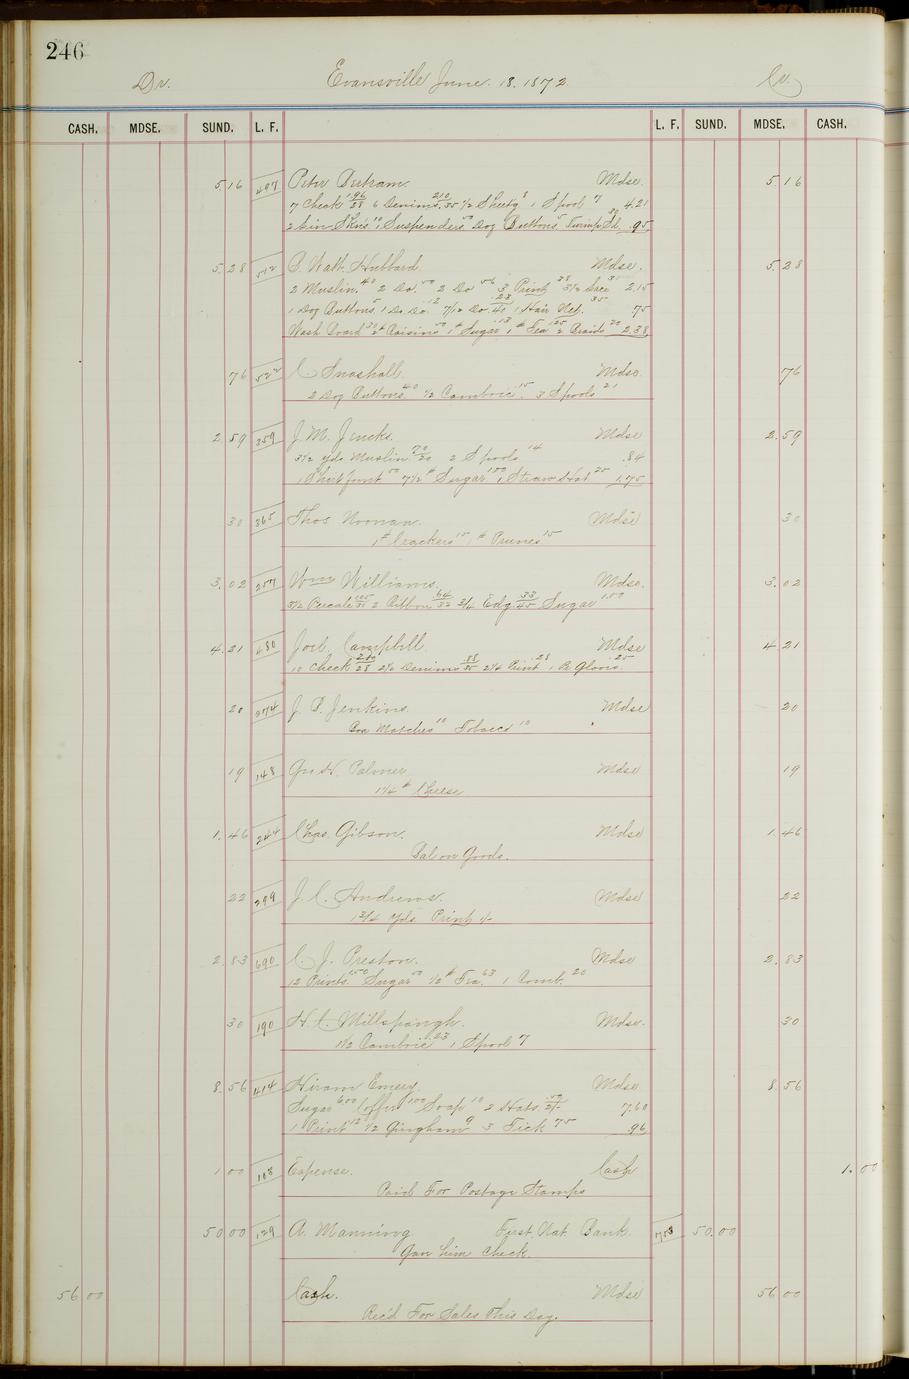 246
Dr. Evansville June. 18. 1872 Cr.
CASH. MDSE. SUND. L. F. L. F. SUND. MDSE. CASH.
5.16 497 Peter Bertram. Mdse. 5.16
7 Check 196/28 6 Denims 210/35 1/2 Sheetg 8 1 Spool 7 4.21
2 Suspenders 50 Doz Buttons 5 .95
5.28 512 Mdse. 5.28
2 Muslin 40 2 Do. 50 2 Do 56 3 Print 38 3 1/2 35 2.15
1 Doz Buttons 5 1 Do Do 12 7/12 Do 23/40 1 Hair Net. 35 75
Wash Board 30 2# Raisins 50 1# Sugar 13 1# Tea 125 2 Braids 20 2.38
76 522 C Snashall Mdse. 76
2 Doz Buttons 40 1/2 Cambric 15 3 Spools 21
2.59 359 J. M. Jencks. Mdse 2.59
3 1/2 yds Muslin 70/20 2 Spools 14 .84
1 Shirt front 50 7 1/2 # Sugar 100 1 Straw Hat 25 1.75
30 365 Thos Noonan. Mdse 30
1# Crackers 15 1# Prunes 15
3.02 257 Wm Williams. Mdse. 3.02
3 1/2 Percale 105/30 2 Ribbon 64/32 3/4 Edg 33/45 Sugar 1.00
4.21 480 Joel Campbell. Mdse 4 21
10 Check 280/28 2 1/2 Denims 88/35 2 1/4 Print .28 1 Pr Gloves .25
20 J. P. Jenkins. Mdse 20
Box Matches 10 Tobacco 10
19 148 Palmer Mdse 19
1 1/4 # Cheese
1.46 244 Chas. Gibson. Mdse 1.46
Bal on Goods.
22 299 J. C. Andrews. Mdse 22
1 3/4 yds Print
2.83 690 C. J. Preston. Mdse 2.83
12 Prints 150 Sugar 50 1/2 # Tea. 63 1 Comb. 20
30 190 H. C. Millspaugh. Mdse. 30
1 1/2 Cambric .23 1 Spool 7
8.56 414 Hiram Emery. Mdse 8.56
Sugar 600 Coffee 100 Soap 10 2 Hats 50 7.60
1 Print 12 1/2 Gingham 9 3 Tick 75 .96
1 00 108 Expense. Cash 1.00
Paid For Postage Stamps
50 00 129 A. Manning First. Nat. Bank. 50.00
Gave him Check.
56 00 Cash. Mdse 56 00
Rec'd For Sales This Day.